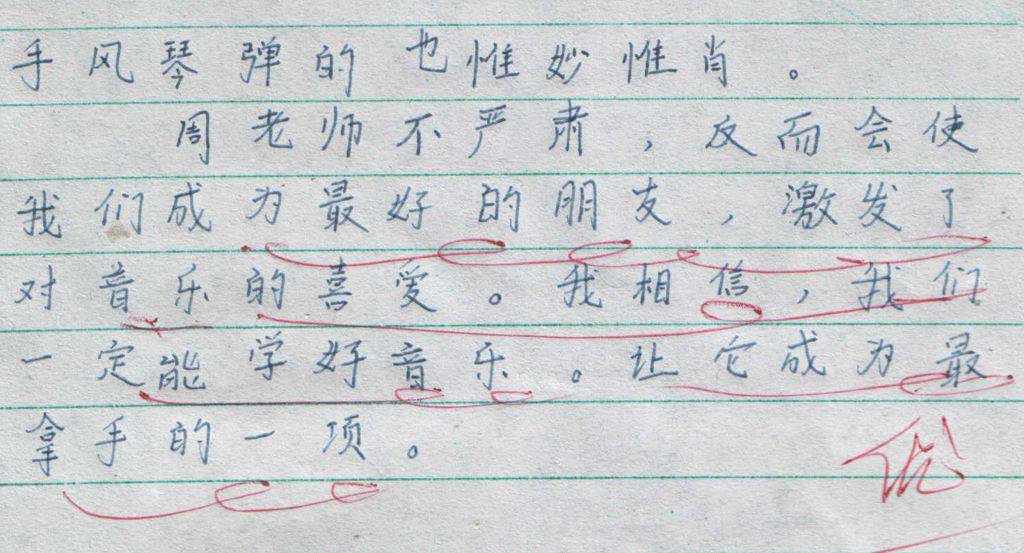 手风琴弹的也惟妙惟肖。
周老师不严肃，反而会使
我们成为最好的朋友，激发了
对音乐的喜爱。我相信，我们
一定能学好音乐。让它成为最
拿手的一项。
优